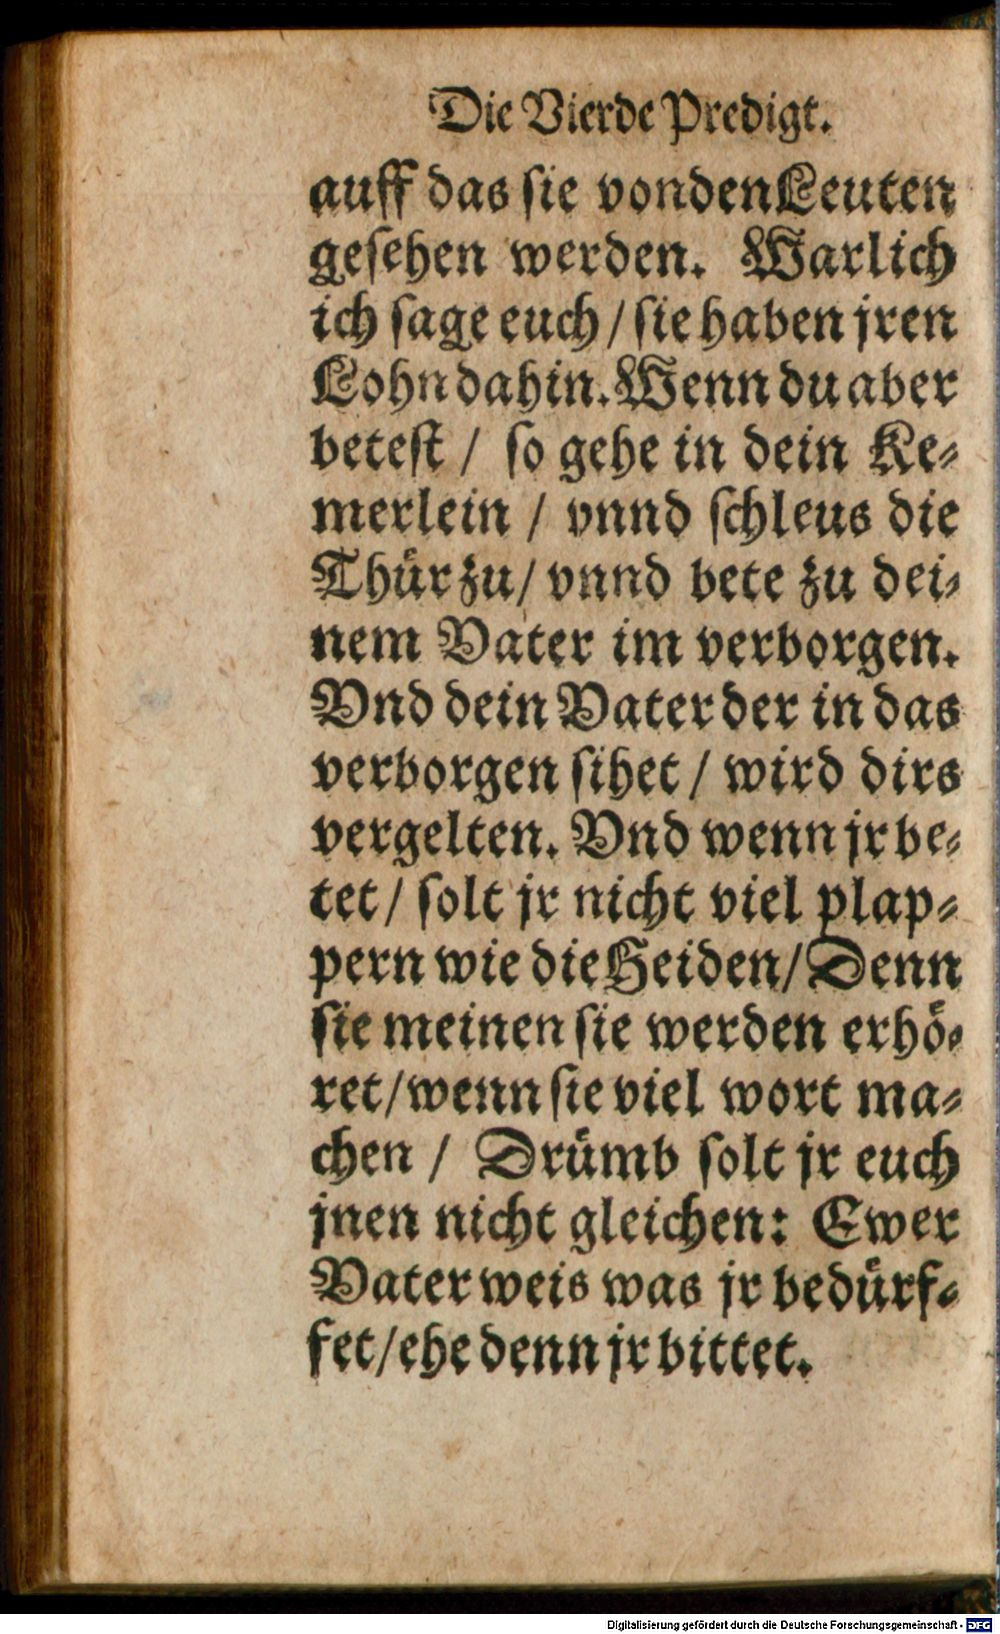 Die Vierde Predigt.
auff das sie von den Leuten
gesehen werden. Warlich
ich sage euch / sie haben jren
Lohn dahin. Wenn du aber
betest / so gehe in dein Ke-
merlein / vnnd schleus die
Thür zu / vnnd bete zu dei-
nem Vater im verborgen.
Vnd dein Vater der in das
verborgen sihet / wird dirs
vergelten. Vnd wenn jr be-
tet / solt jr nicht viel plap-
pern wie die Heiden / Denn
sie meinen sie werden erhö-
ret / wenn sie viel wort ma-
chen / Drümb solt jr euch
jnen nicht gleichen: Ewer
Vater weis was jr bedürf-
fet / ehe denn jr bittet.
Digitalisierung gefördert durch die Deutsche Forschungsgemeinschaft - DFG